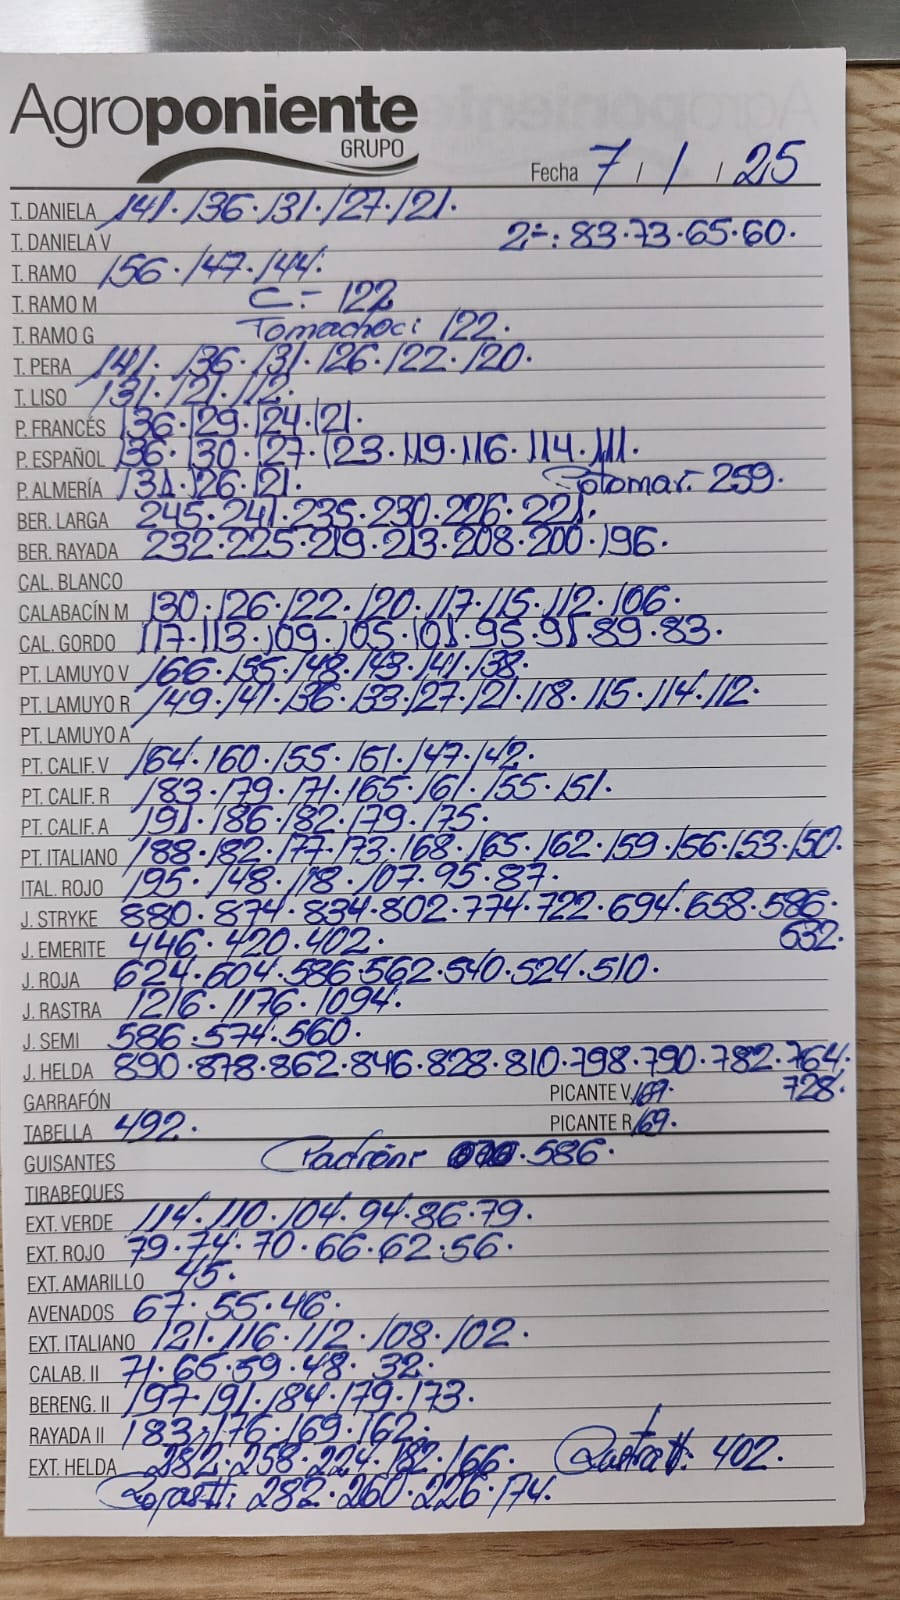 Agroponiente
GRUPO
Fecha 7 / 1 / 25
T. DANIELA 141. 136. 131. 127. 121.
T. DANIELA V 2ª: 83.73.65.60.
T. RAMO 156. 147. 144.
T. RAMO M C.- 122
T. RAMO G Tomachoc: 122.
T. PERA 141. 136. 131. 126. 122. 120.
T. LISO 131. 121. 112.
P. FRANCÉS 136. 129. 124. 121.
P. ESPAÑOL 136. 130. 127. 123. 119. 116. 114. 111.
P. ALMERÍA 131. 126. 121. 259.
BER. LARGA 245. 241. 235. 230. 226. 221.
BER. RAYADA 232. 225. 219. 213. 208. 200. 196.
CAL. BLANCO
CALABACÍN M 130. 126. 122. 120. 117. 115. 112. 106.
CAL. GORDO 117. 113. 109. 105. 101. 95. 91. 89. 83.
PT. LAMUYO V 166. 155. 148. 143. 141. 138.
PT. LAMUYO R 149. 141. 136. 133. 127. 121. 118. 115. 114. 112.
PT. LAMUYO A
PT. CALIF. V 164. 160. 155. 151. 147. 142.
PT. CALIF. R 183. 179. 171. 165. 161. 155. 151.
PT. CALIF. A 191. 186. 182. 179. 175.
PT. ITALIANO 188. 182. 177. 173. 168. 165. 162. 159. 156. 153. 150.
ITAL. ROJO 195. 148. 118. 107. 95. 87.
J. STRYKE 880. 874. 834. 802. 774. 722. 694. 658. 586.
J. EMERITE 446. 420. 402. 632.
J. ROJA 624. 604. 586. 562. 540. 524. 510.
J. RASTRA 1216. 1176. 1094.
J. SEMI 586. 574. 560.
J. HELDA 890. 878. 862. 846. 828. 810. 798. 790. 782. 764.
GARRAFÓN PICANTE V. 169. 728.
TABELLA 492. PICANTE R 169.
GUISANTES Padrón: 586.
TIRABEQUES
EXT. VERDE 114. 110. 104. 94. 86. 79.
EXT. ROJO 79. 74. 70. 66. 62. 56.
EXT. AMARILLO 45.
AVENADOS 67. 55. 46.
EXT. ITALIANO 121. 116. 112. 108. 102.
CALAB. II 71. 65. 59. 48. 32.
BERENG. II 197. 191. 184. 179. 173.
RAYADA II 183. 176. 169. 162.
EXT. HELDA 282. 258. 224. 182. 166. Rastra II: 402.
Rojas II: 282. 260. 226. 174.